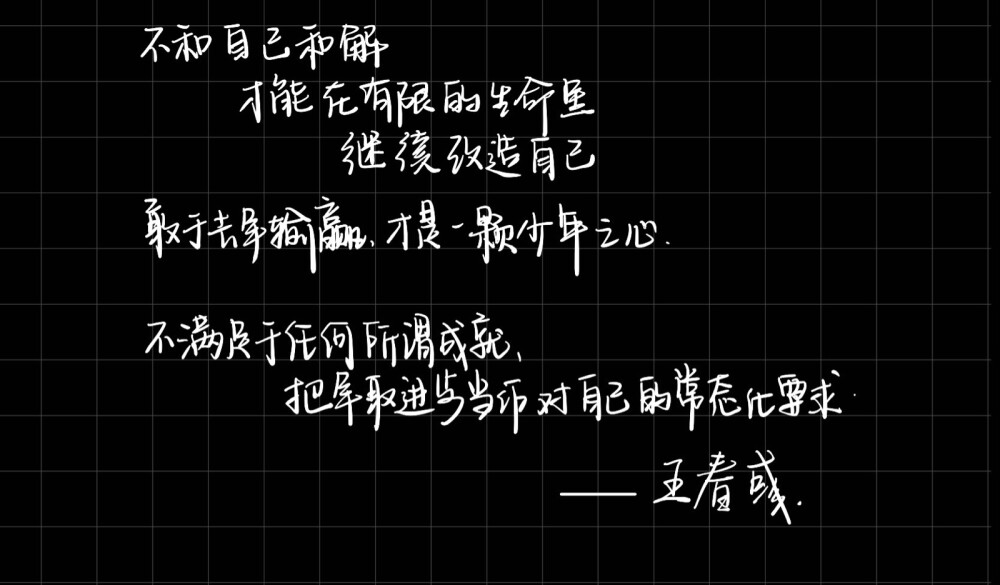 不和自己和解
才能在有限的生命里
继续改造自己
敢于去争输赢、才是一颗少年之心.
不满足于任何所谓成就、
把争取进步当作对自己的常态化要求.
——王春彧.